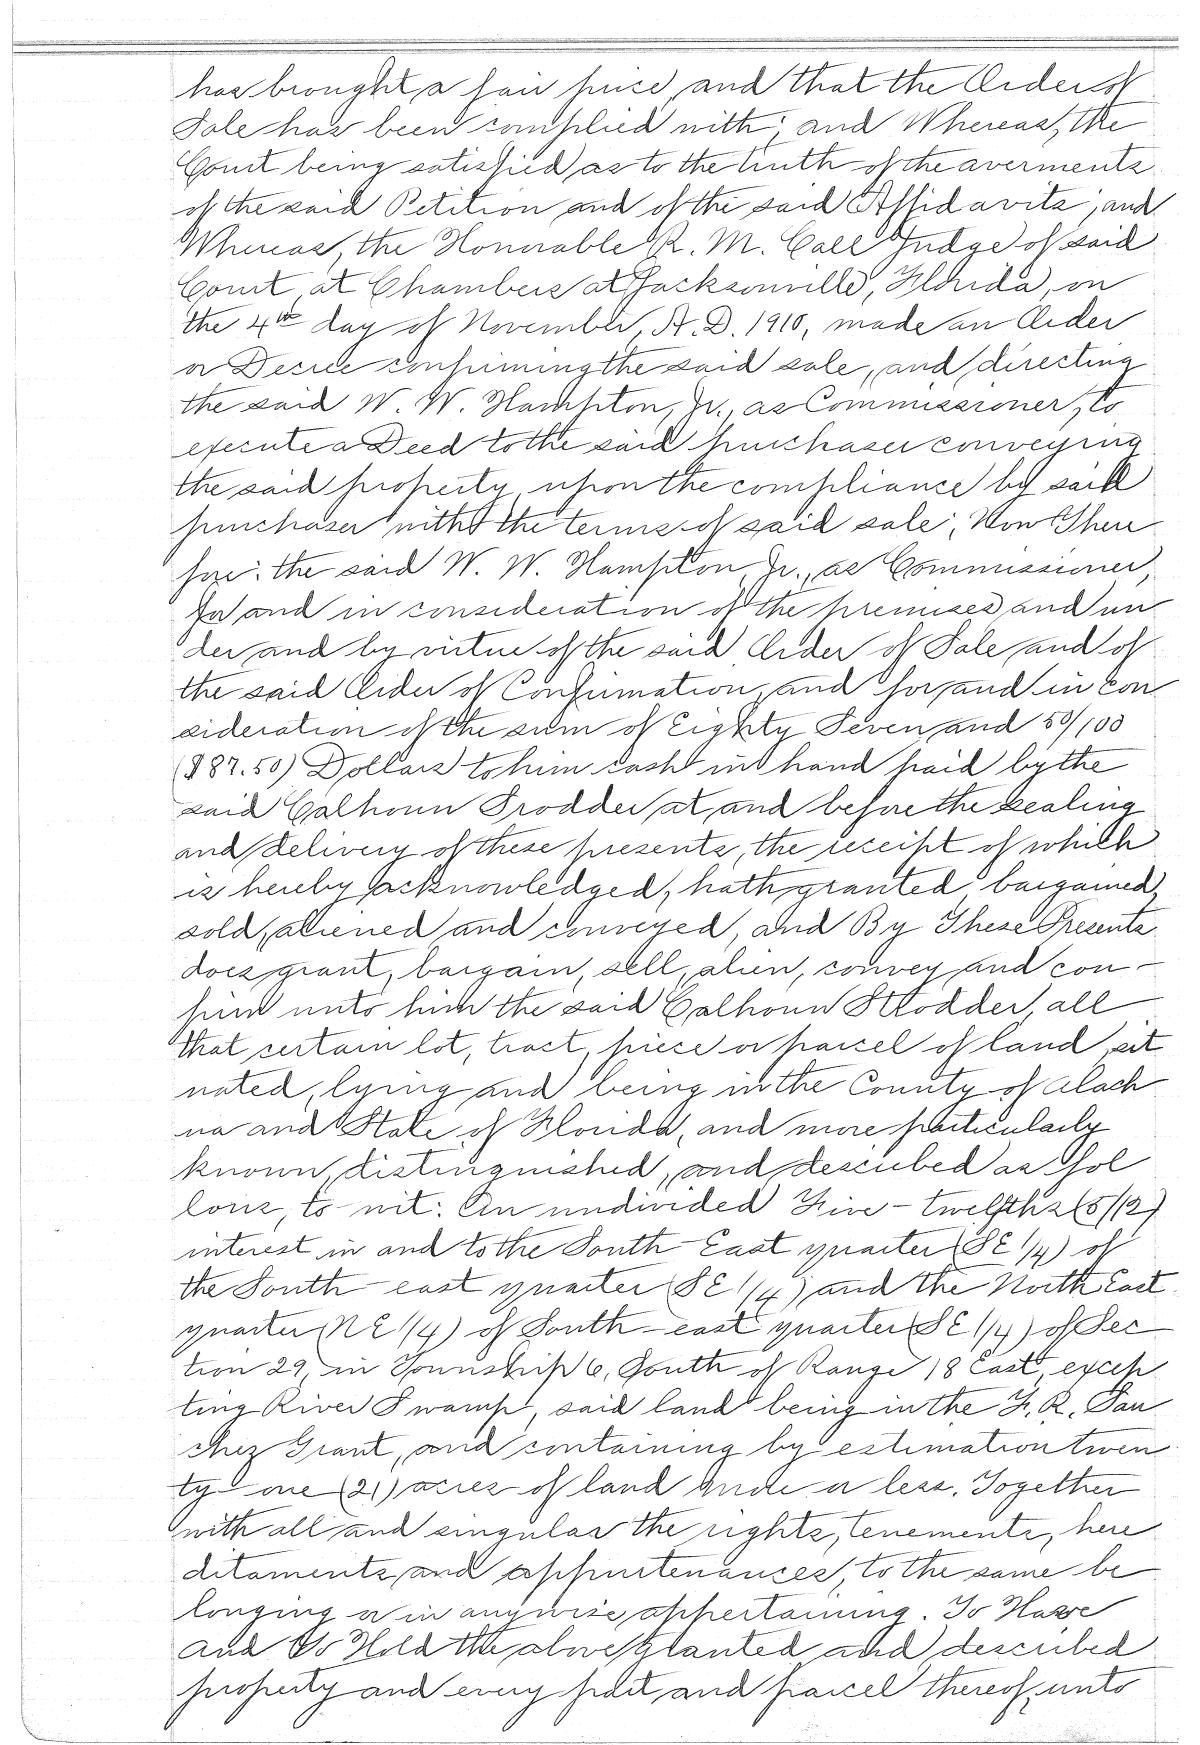 has brought a fair price, and that the Order of
Sale has been complied with; and Whereas, the
Court being satisfied as to the truth of the averments
of the said Petition and of the said Affidavits; and
Whereas, the Honorable R. M. Call Judge of said
Court, at Chambers at Jacksonville, Florida, on
the 4th day of November, A. D. 1910, made an Order
or Decree confirming the said sale, and directing
the said W. W. Hampton, Jr., as Commissioner, to
execute a Deed to the said purchaser conveying
the said property, upon the compliance by said
purchaser with the terms of said sale; Now There
fore: the said W. W. Hampton, Jr., as Commissioner,
for and in consideration of the premises and un
der and by virtue of the said Order of Sale and of
the said Order of Confirmation, and for and in con
sideration of the sum of Eighty Seven and 50/100
($87.50) Dollars to him cash in hand paid by the
said Calhoun Strodder at and before the sealing
and delivery of these presents, the receipt of which
is hereby acknowledged, hath granted, bargained,
sold, aliened and conveyed, and By These Presents
does grant, bargain, sell, alien, convey and con-
firm unto him the said Calhoun Strodder, all
that certain lot, tract, piece or parcel of land, sit
uated, lying and being in the County of Alach
ua and State of Florida, and more particularly
known, distinguished, and described as fol
lows, to-wit: An undivided Five-twelfths (5/12)
interest in and to the South East quarter (SE 1/4) of
the South-east quarter (SE 1/4) and the North East
quarter (NE 1/4) of South-east quarter (SE 1/4) of Sec
tion 29, in Township 6, South of Range 18 East, excep
ting River Swamp, said land being in the F. R. San
chez Grant, and containing by estimation twen
ty-one (21) acres of land more or less. Together
with all and singular the rights, tenements, here
ditaments and appurtenances, to the same be
longing or in anywise appertaining. To Have
and To Hold the above granted and described
property and every part and parcel thereof, unto